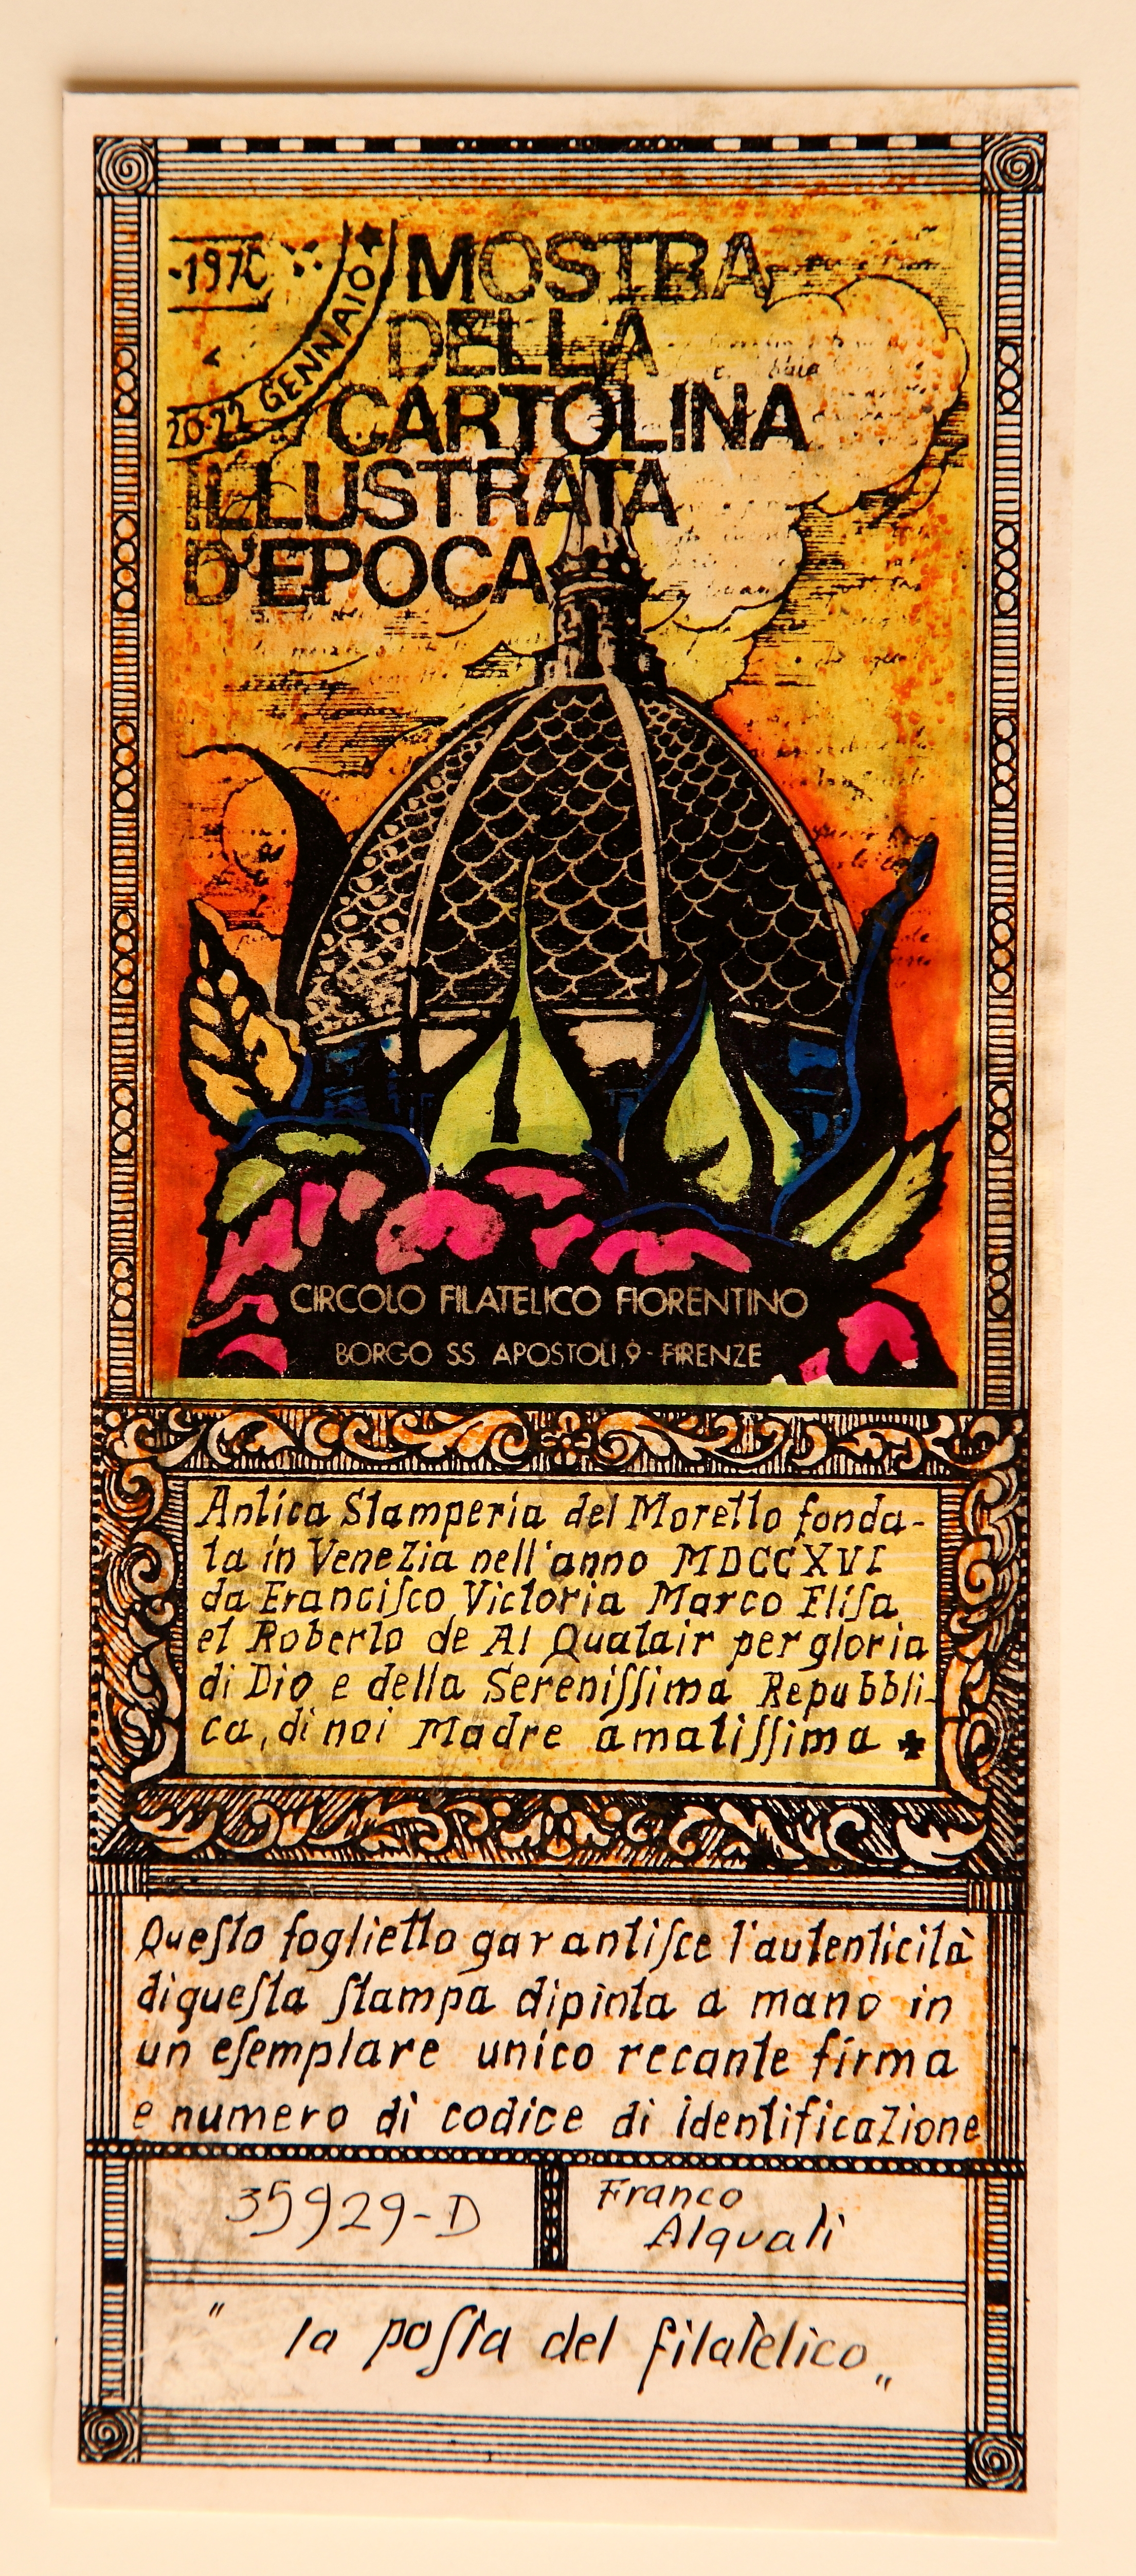 20-22 GENNAIO
MOSTRA
DELLA
CARTOLINA
ILLUSTRATA
D'EPOCA
CIRCOLO FILATELICO FIORENTINO
BORGO SS. APOSTOLI, 9 - FIRENZE
Antica Stamperia del Moretto fonda-
ta in Venezia nell'anno MDCCXVI
da Franciſco Victoria Marco Eliſa
et Roberto de Al Qualair per gloria
di Dio e della Sereniſſima Repubbli-
ca, di noi Madre amatiſſima
Queſto foglietto garantiſce l'autenticità
di queſta ſtampa dipinta a mano in
un eſemplare unico recante firma
e numero di codice di identificazione
35929-D
Franco
Alquali
" la poſta del filatelico „